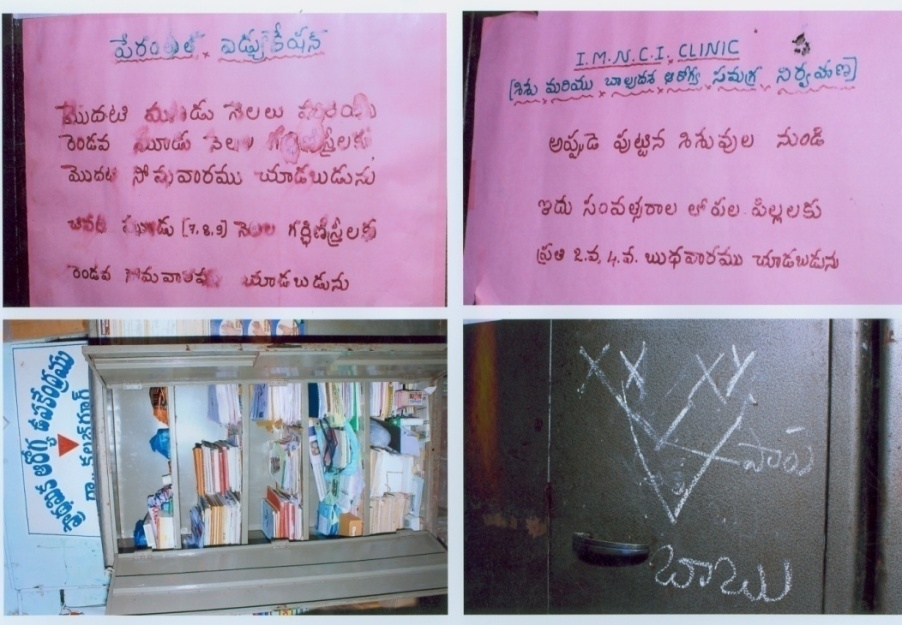 పేరంట్స్ ఎడ్యుకేషన్
మొదటి మూడు నెలలు
రెండవ మూడు నెలల గర్భిణీస్త్రీలకు
మొదట సోమవారము చూడబడును
చివరి మూడు [7,8,9] నెలల గర్భిణీస్త్రీలకు
రెండవ సోమవారము చూడబడును
I.M.N.C.I. CLINIC
[శిశు మరియు బాల్యదశ ఆరోగ్య సమగ్ర నిర్వహణ]
అప్పుడె పుట్టిన శిశువుల నుండి
ఇదు సంవత్సరాల లోపల పిల్లలకు
ప్రతి 2.వ, 4.వ. బుధవారము చూడబడును
ప్రాథమిక ఆరోగ్య ఉపకేంద్రము
XX XY
పాప
బాబు